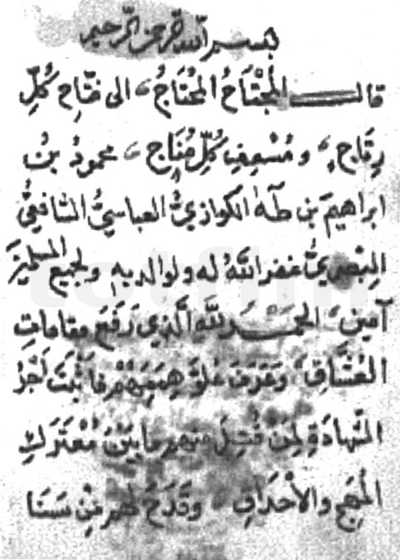 بسم الله الرحمن الرحيم
قال المجتاح المحتاج، الى فتاح كُلِّ
رِتاج، ومُسْعِفِ كُلِّ مُناج، محمودُ بنُ
ابراهيم بن طه الكوازيُّ العباسيُّ الشافعيُّ
البصريُّ غفر الله له ولوالديه ولجميع المسلمين
آمين، الحمد لله الذي رَفَعَ مقاماتِ
العُشَّاقِ، وعَرَفَ عُلوَّ هِمَمِهِمْ فأثبتَ أجْرَ
الشهادةِ لِمَنْ قُتِلَ منهم ما بين مُعْتَرَكِ
المُهَجِ والأحْداقِ وقَدَحَ لهم مِنْ سَنَا